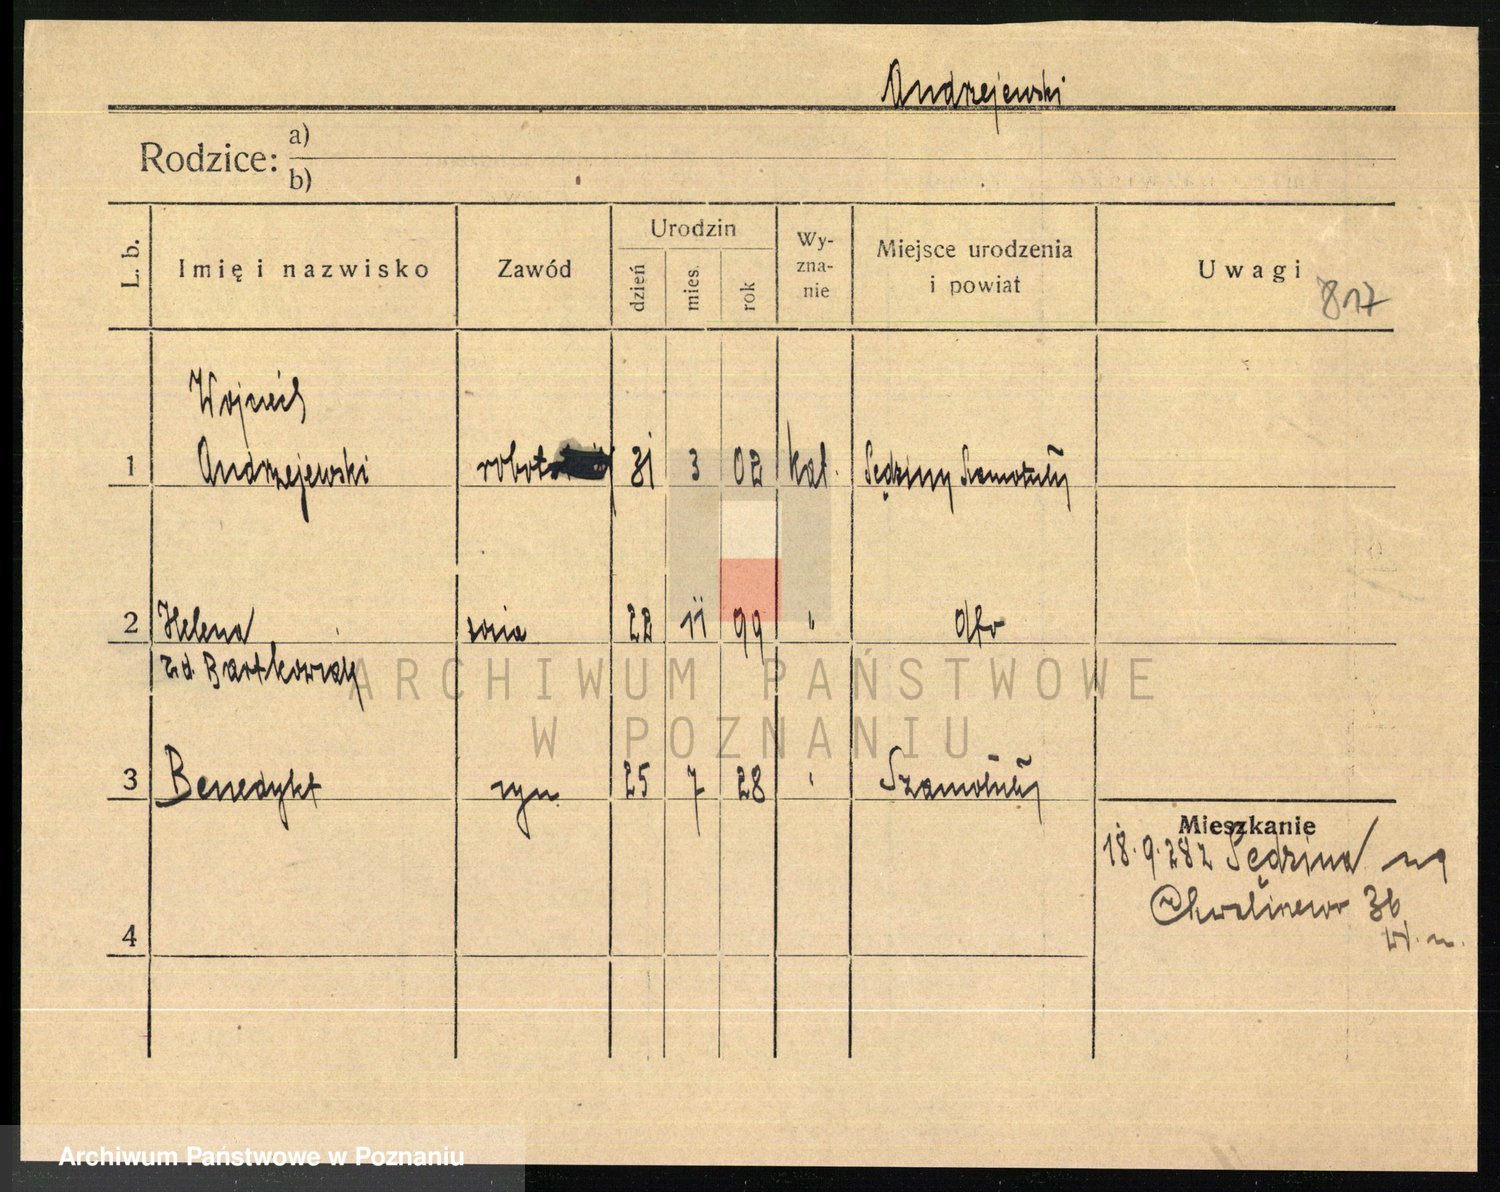 Andrzejewski
Rodzice: a)
b)
L. b. Imię i nazwisko Zawód Urodzin dzień mies. rok Wy-zna-nie Miejsce urodzenia i powiat Uwagi
817
Wojciech
1 Andrzejewski 31 3 02 kat. Sędziny Szamotuły
2 Helena 22 11 99 "
zd. Bartkowiak
ARCHIWUM PAŃSTWOWE
W POZNANIU
3 Benedykt syn 25 7 28 " Szamotuły
Mieszkanie
18.9.28 z
4
36
Archiwum Państwowe w Poznaniu